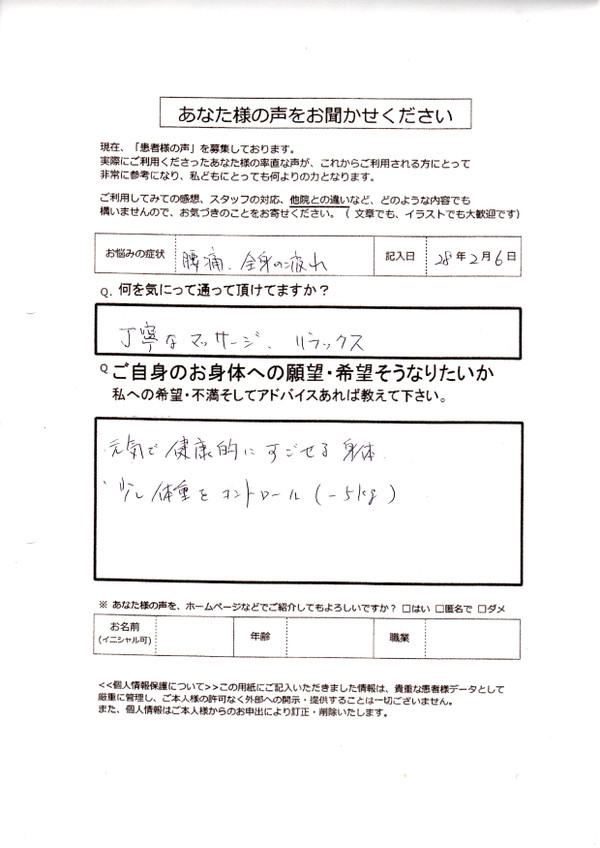 あなた様の声をお聞かせください
現在、「患者様の声」を募集しております。
実際にご利用くださったあなた様の率直な声が、これからご利用される方にとって
非常に参考になり、私どもにとっても何よりの力となります。
ご利用してみての感想、スタッフの対応、他院との違いなど、どのような内容でも
構いませんので、お気づきのことをお寄せください。（ 文章でも、イラストでも大歓迎です）
お悩みの症状 腰痛、全身の疲れ 記入日 28年2月6日
Q. 何を気にって通って頂けてますか？
丁寧なマッサージ、リラックス
Q ご自身のお身体への願望・希望そうなりたいか
私への希望・不満そしてアドバイスあれば教えて下さい。
元気で健康的にすごせる身体
少し体重をコントロール（－5kg）
※ あなた様の声を、ホームページなどでご紹介してもよろしいですか？ □はい □匿名で □ダメ
お名前 年齢 職業
(イニシャル可)
<<個人情報保護について>>この用紙にご記入いただきました情報は、貴重な患者様データとして
厳重に管理し、ご本人様の許可なく外部への開示・提供することは一切ございません。
また、個人情報はご本人様からのお申出により訂正・削除いたします。